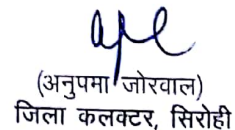 (अनुपमा जोरवाल)
जिला कलक्टर, सिरोही